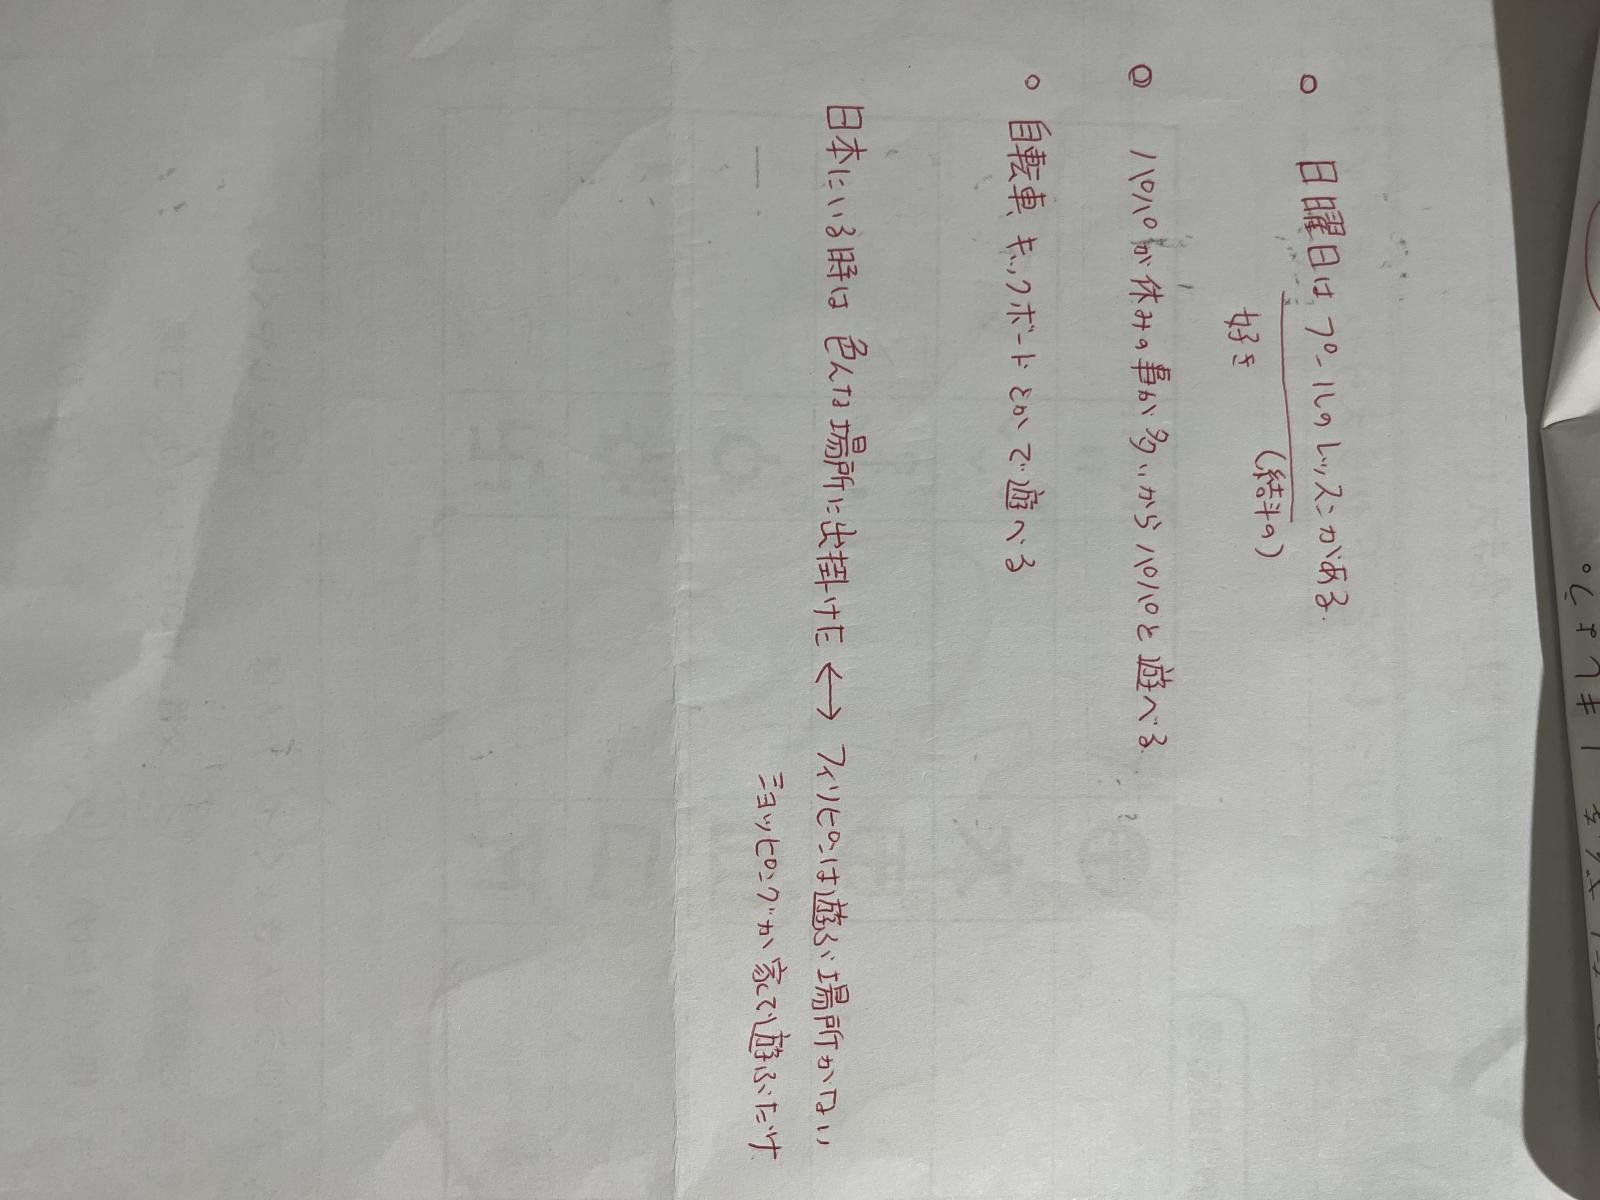 ○ 日曜日はプールのレッスンがある.
好き
○ パパが休みの事が多いからパパと遊べる
○ 自転車、キックボードとかで遊べる
日本にいる時は色んな場所に出掛けた ←→ フィリピンは遊ぶ場所がない
ショッピングか家で遊ぶだけ